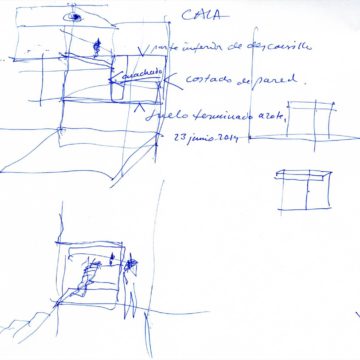 CALA
parte inferior de descansillo
costado de pared.
suelo terminado
23 junio. 2014